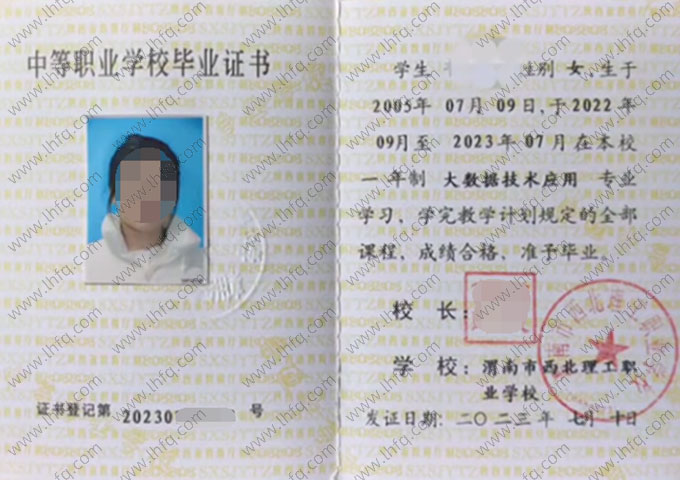 中等职业学校毕业证书
证书登记第 20230 号
学生 性别 女,生于
2005年 07月 09日,于2022年
09月至 2023年07月在本校
一年制 大数据技术应用 专业
学习、学完教学计划规定的全部
课程,成绩合格,准予毕业。
校 长:
学 校: 渭南市西北理工职
业学校
发证日期: 二〇二三年 七月 十日
www.lhfq.com